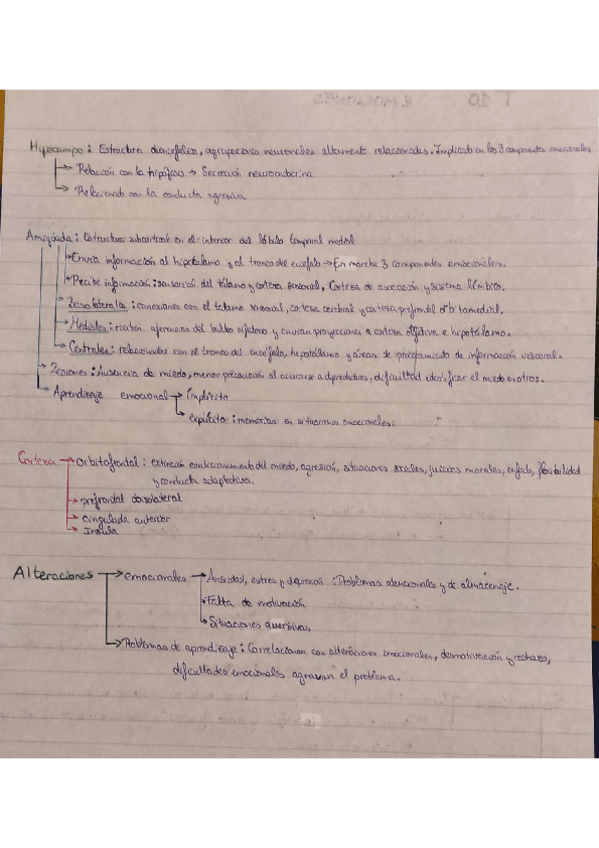 Hipocampo: Estructura diencefálica, agrupaciones neuronales altamente relacionadas. Implicado en los 3 componentes emocionales
Relación con la hipófisis → Secreción neuroendocrina
Relacionado con la conducta agresiva
Amígdala: Estructura subcortical en el interior del lóbulo temporal medial
Envía información al hipotálamo y al tronco del encéfalo → En marcha 3 componentes emocionales.
Recibe información: sensorial del tálamo y corteza sensorial, Corteza de asociación y sistema límbico.
Basolaterales: conexiones con el tálamo sensorial, corteza cerebral y corteza prefrontal orbitomedial.
Mediales: reciben aferencias del bulbo olfativo y envían proyecciones a corteza olfativa e hipotálamo.
Centrales: relacionadas con el tronco del encéfalo, hipotálamo y áreas de procesamiento de información visceral.
Lesiones: Ausencia de miedo, menor precaución al acercarse a depredadores, dificultad identificar el miedo en otros.
Aprendizaje emocional → Implícito
explícito: memorias en situaciones emocionales.
Corteza → orbitofrontal: extinción condicionamiento del miedo, agresión, situaciones sociales, juicios morales, enfado, flexibilidad
y conducta adaptativa.
prefrontal dorsolateral
cingulada anterior
Insula
Alteraciones → emocionales → Ansiedad, estrés y depresión: Problemas atencionales y de almacenaje.
Falta de motivación
Situaciones aversivas
Problemas de aprendizaje: Correlacionan con alteraciones emocionales, desmotivación y rechazo,
dificultades emocionales agravan el problema.